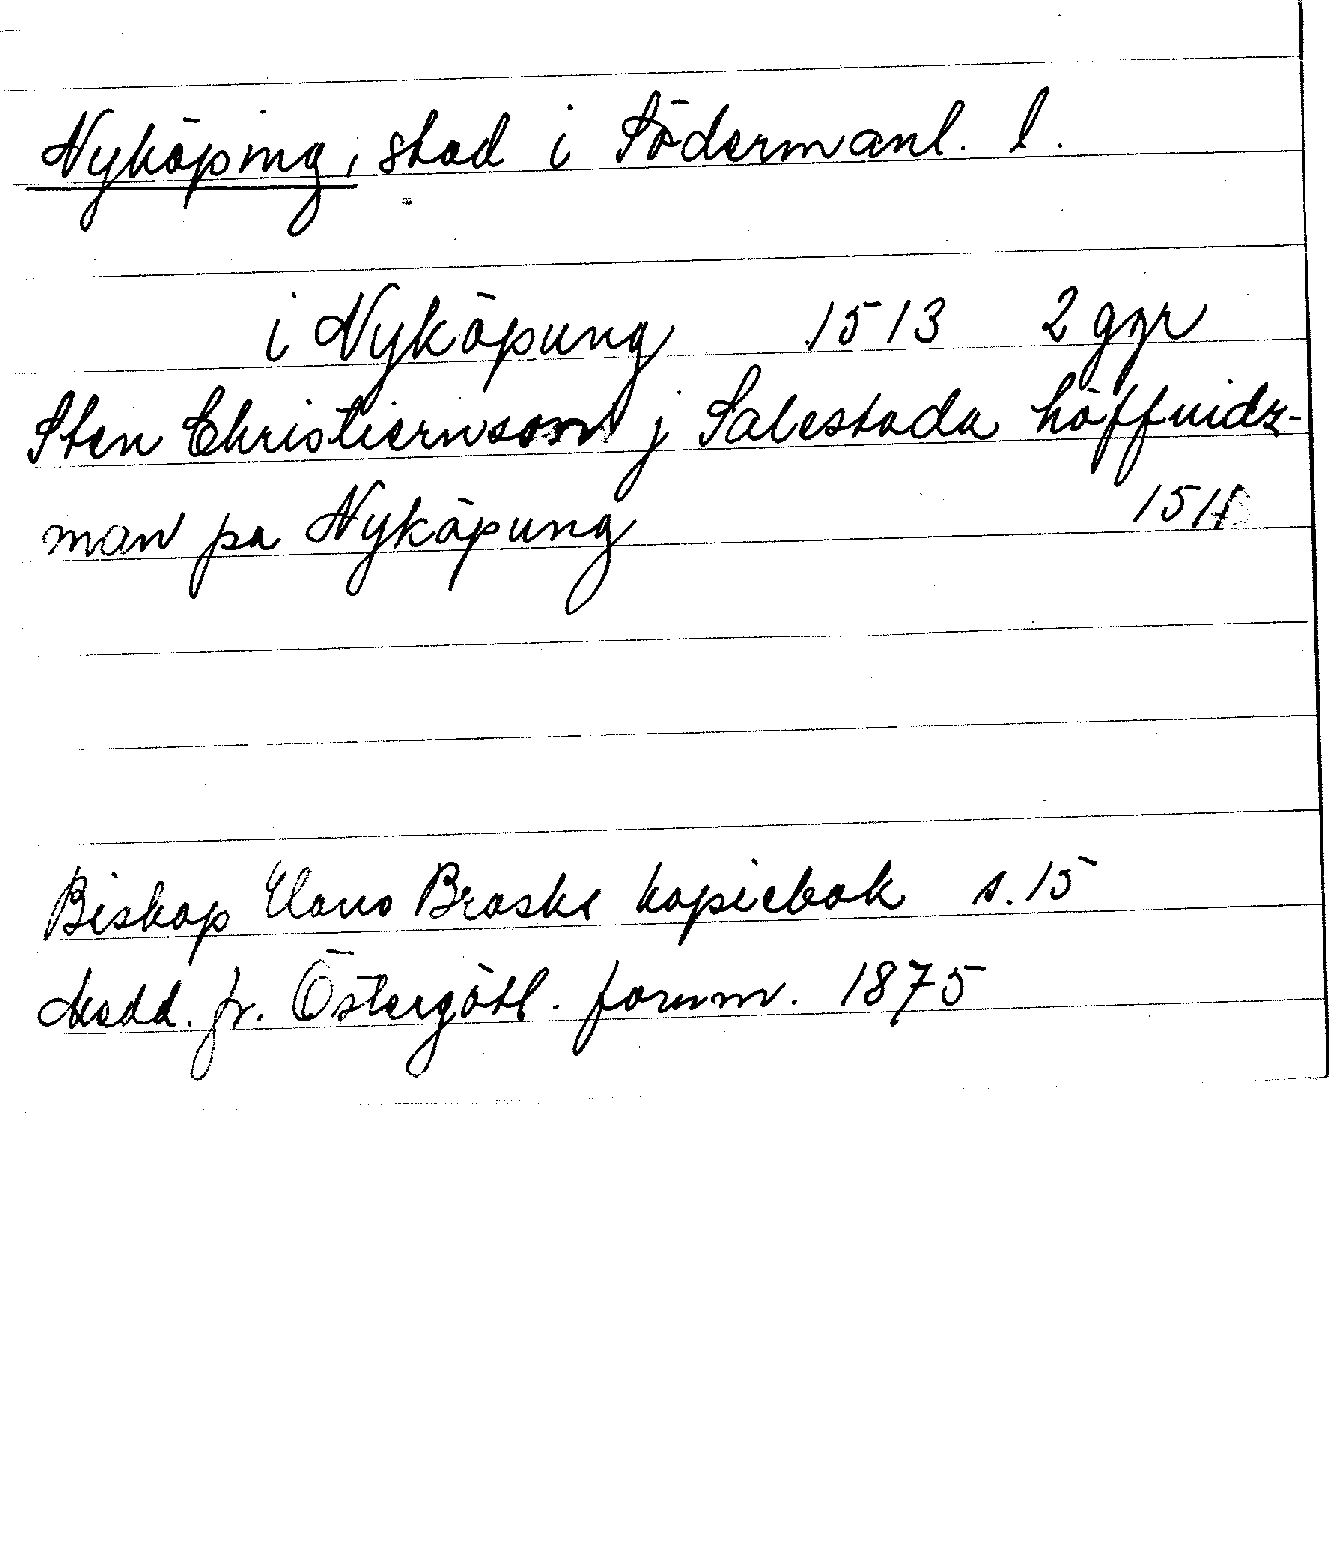 Nyköping, stad i Södermanl. l.
i Nyköpung 1513 2 ggr
Sten Christiernson j Salestada höffuidz-
man pa Nyköpung
Biskop Hans Brasks kopiebok s. 15
Medd. fr. Östergötl. fornm. 1875